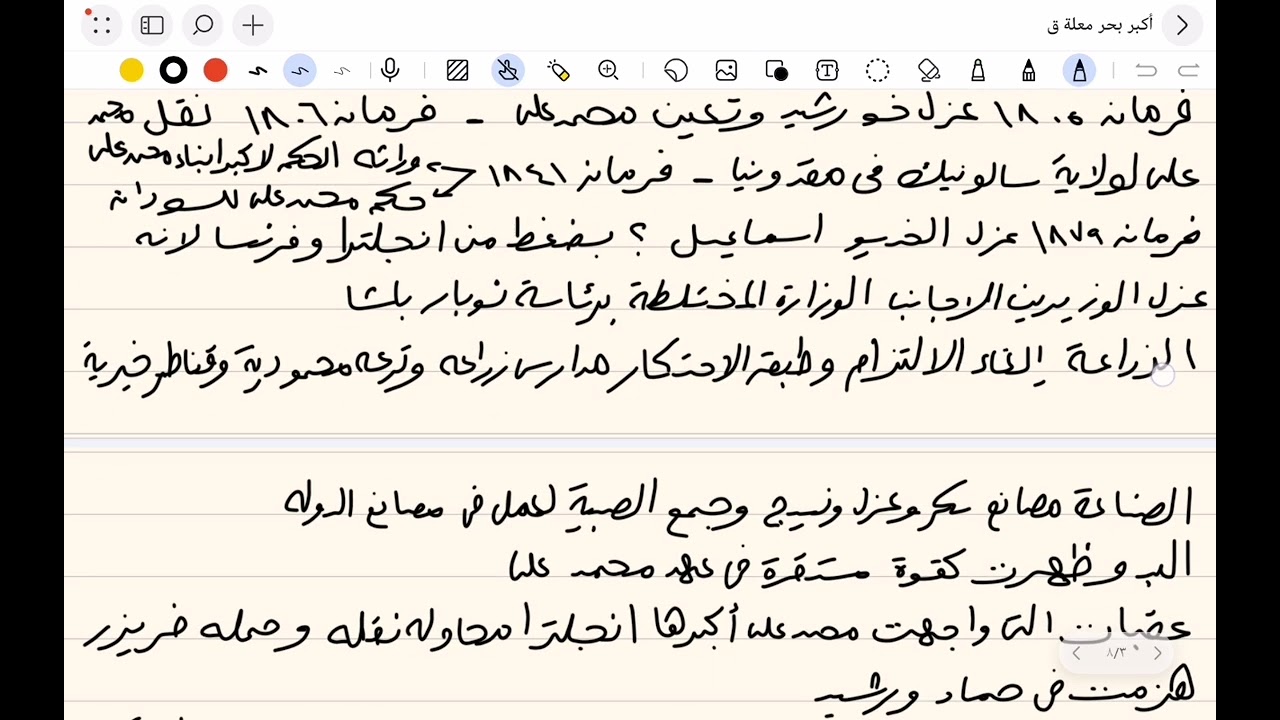 أكبر بحر معلة ق
فرمانه ١٨٠٥ عزل خورشيد وتعين محمد على - فرمانه ١٨٠٦ نقل محمد
على لولاية سالونيك فى مقدونيا - فرمانه ١٨٤١
وراثه الحكم لاكبر ابناء محمد على
حكم محمد على للسودانه
فرمانه ١٨٧٩ عزل الخديو اسماعيل ؟ بضغط من انجلترا وفرنسا لانه
عزل الوزيرين الاجانب الوزارة المختلطة برئاسة نوبار باشا
الزراعة إلغاء الالتزام وطبقه الاحتكار مدارس زراعه وترعه محمودية وقناطر خيرية
الصناعة مصانع سكر وغزل ونسيج وجمع الصبية لعمل فى مصانع الدوله
البدو ظهرت كقوة مستقرة فى عهد محمد على
عقبات التى واجهت محمد على أكبرها انجلترا محاوله نقله وحمله فريزر
هزمت فى حماد ورشيد
٨/٣